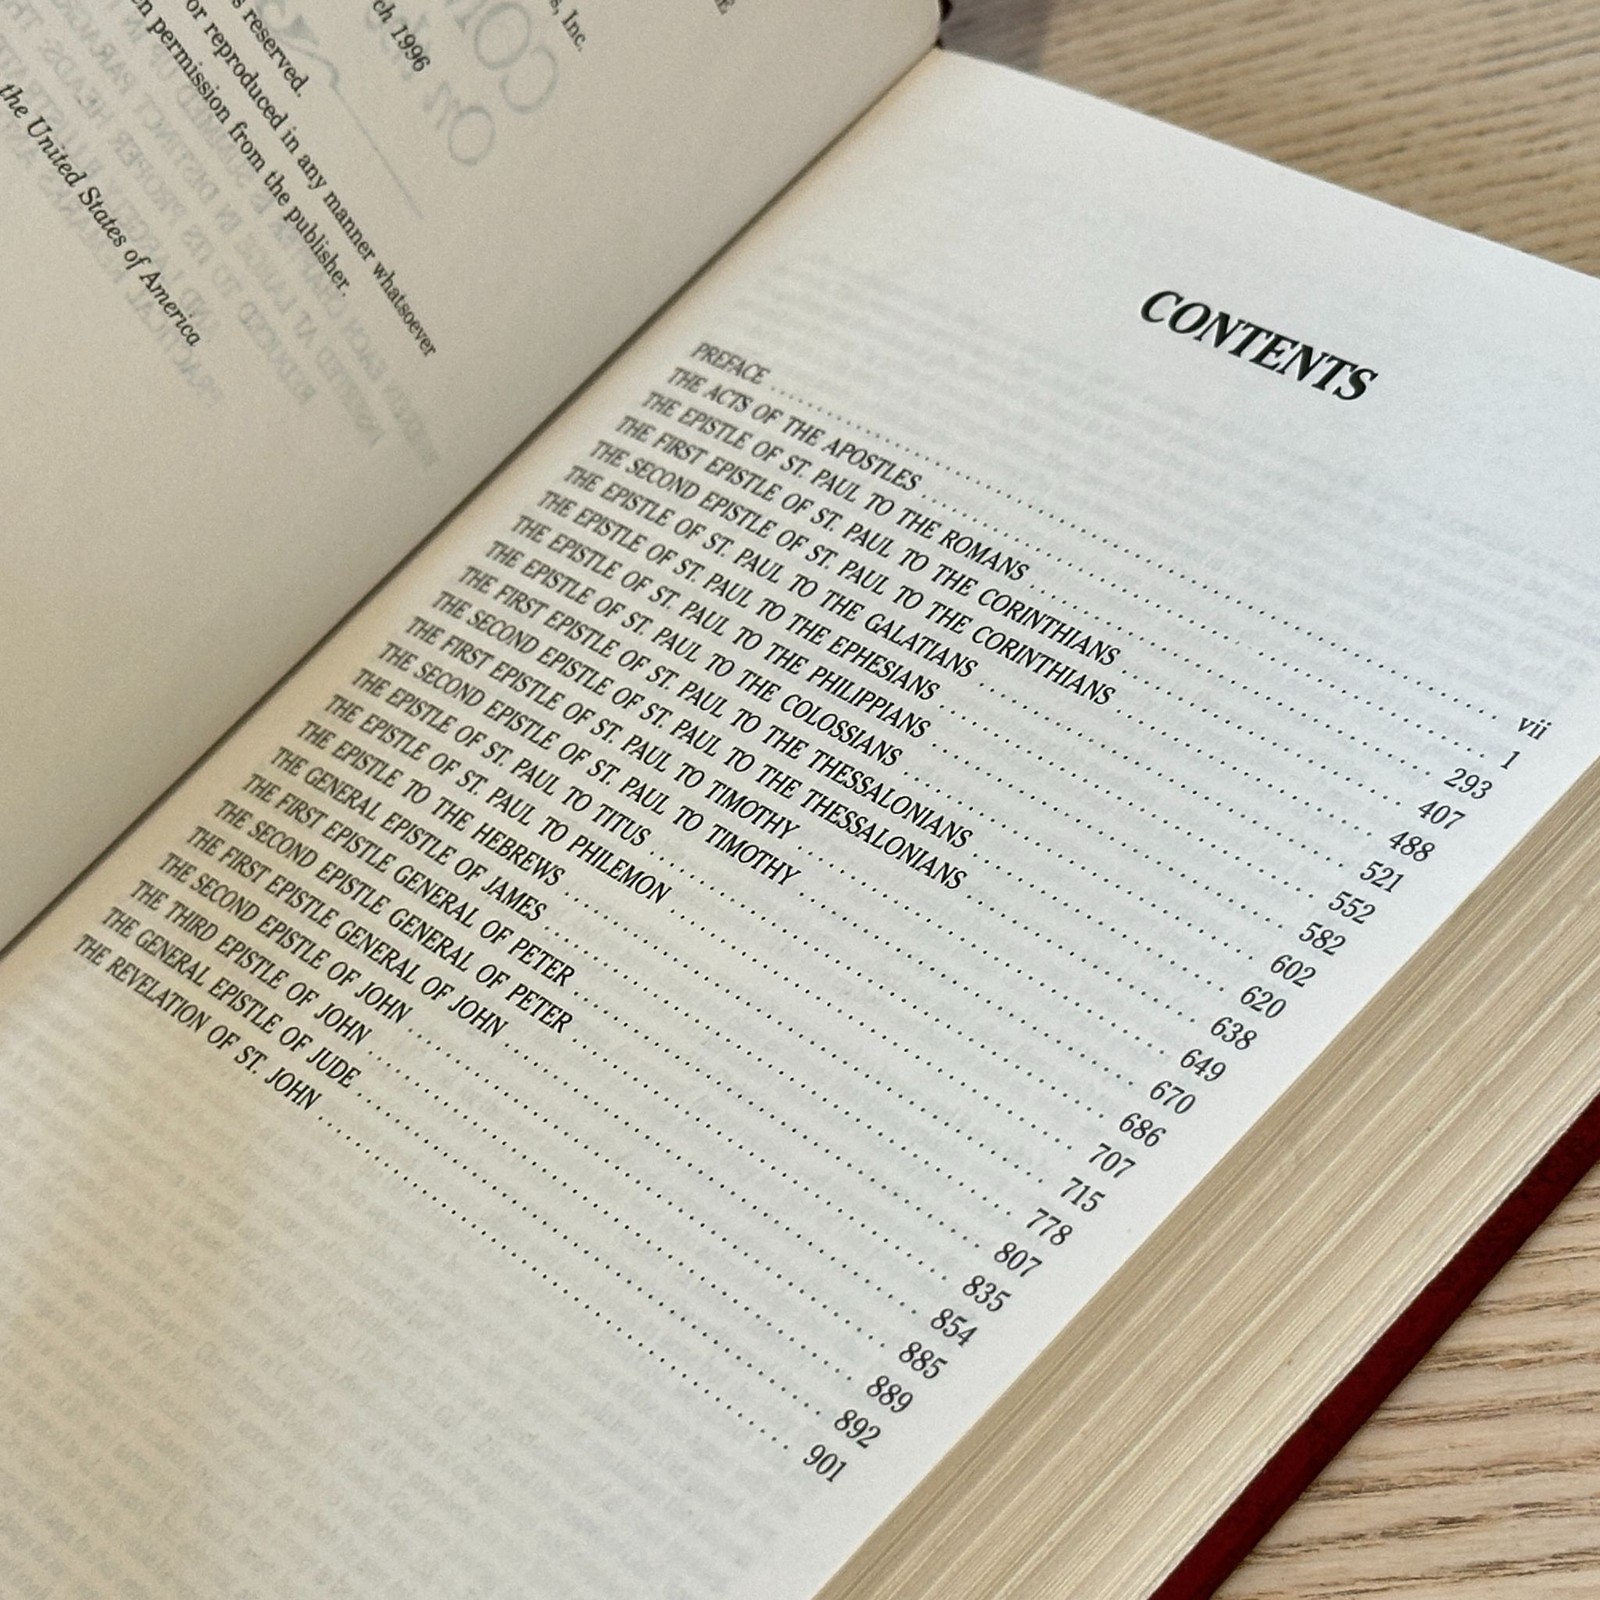 s, Inc.
ch 1996
s reserved.
or reproduced in any manner whatsoever
en permission from the publisher.
the United States of America
CONTENTS
PREFACE vii
THE ACTS OF THE APOSTLES 1
THE EPISTLE OF ST. PAUL TO THE ROMANS 293
THE FIRST EPISTLE OF ST. PAUL TO THE CORINTHIANS 407
THE SECOND EPISTLE OF ST. PAUL TO THE CORINTHIANS 488
THE EPISTLE OF ST. PAUL TO THE GALATIANS 521
THE EPISTLE OF ST. PAUL TO THE EPHESIANS 552
THE EPISTLE OF ST. PAUL TO THE PHILIPPIANS 582
THE EPISTLE OF ST. PAUL TO THE COLOSSIANS 602
THE FIRST EPISTLE OF ST. PAUL TO THE THESSALONIANS 620
THE SECOND EPISTLE OF ST. PAUL TO THE THESSALONIANS 638
THE FIRST EPISTLE OF ST. PAUL TO TIMOTHY 649
THE SECOND EPISTLE OF ST. PAUL TO TIMOTHY 670
THE EPISTLE OF ST. PAUL TO TITUS 686
THE EPISTLE OF ST. PAUL TO PHILEMON 707
THE EPISTLE TO THE HEBREWS 715
THE GENERAL EPISTLE OF JAMES 778
THE FIRST EPISTLE GENERAL OF PETER 807
THE SECOND EPISTLE GENERAL OF PETER 835
THE FIRST EPISTLE GENERAL OF JOHN 854
THE SECOND EPISTLE OF JOHN 885
THE THIRD EPISTLE OF JOHN 889
THE GENERAL EPISTLE OF JUDE 892
THE REVELATION OF ST. JOHN 901